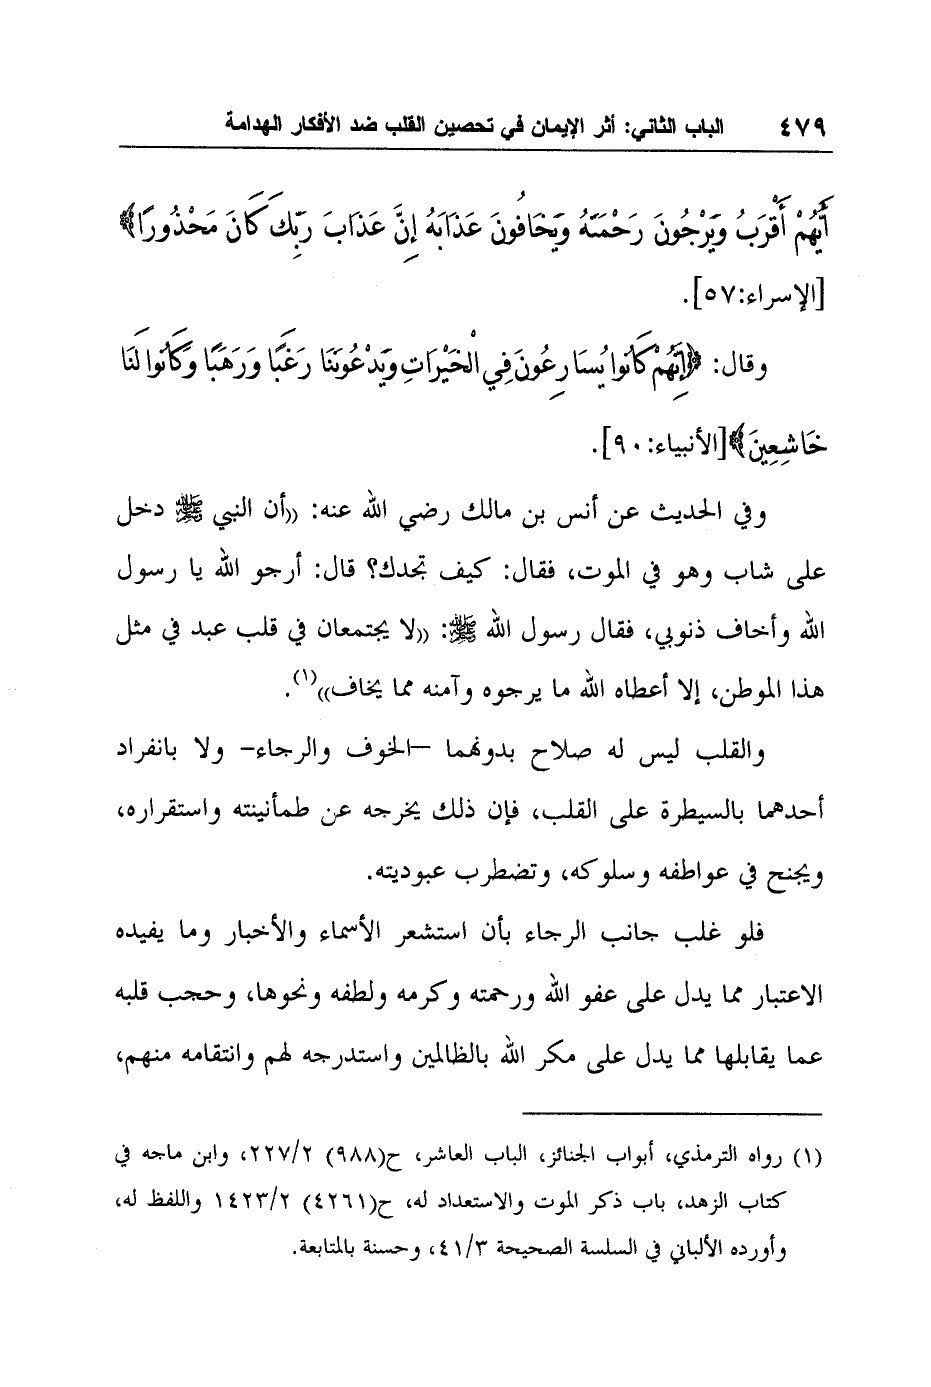 ٤٧٩ الباب الثاني: أثر الإيمان في تحصين القلب ضد الأفكار الهدامة
أَيُّهُمْ أَقْرَبُ وَيَرْجُونَ رَحْمَتَهُ وَيَخَافُونَ عَذَابَهُ إِنَّ عَذَابَ رَبِّكَ كَانَ مَحْذُورًا﴾
[الإسراء:٥٧].
وقال: ﴿إِنَّهُمْ كَانُوا يُسَارِعُونَ فِي الْخَيْرَاتِ وَيَدْعُونَنَا رَغَبًا وَرَهَبًا وَكَانُوا لَنَا
خَاشِعِينَ﴾[الأنبياء:٩٠].
وفي الحديث عن أنس بن مالك رضي الله عنه: ((أن النبي ﷺ دخل
على شاب وهو في الموت، فقال: كيف تجدك؟ قال: أرجو الله يا رسول
الله وأخاف ذنوبي، فقال رسول الله ﷺ: ((لا يجتمعان في قلب عبد في مثل
هذا الموطن، إلا أعطاه الله ما يرجوه وآمنه مما يخاف))(١).
والقلب ليس له صلاح بدونهما –الخوف والرجاء– ولا بانفراد
أحدهما بالسيطرة على القلب، فإن ذلك يخرجه عن طمأنينته واستقراره،
ويجنح في عواطفه وسلوكه، وتضطرب عبوديته.
فلو غلب جانب الرجاء بأن استشعر الأسماء والأخبار وما يفيده
الاعتبار مما يدل على عفو الله ورحمته وكرمه ولطفه ونحوها، وحجب قلبه
عما يقابلها مما يدل على مكر الله بالظالمين واستدرجه لهم وانتقامه منهم،
(١) رواه الترمذي، أبواب الجنائز، الباب العاشر، ح(٩٨٨) ٢٢٧/٢، وابن ماجه في
كتاب الزهد، باب ذكر الموت والاستعداد له، ح(٤٢٦١) ١٤٢٣/٢ واللفظ له،
وأورده الألباني في السلسة الصحيحة ٤١/٣، وحسنة بالمتابعة.